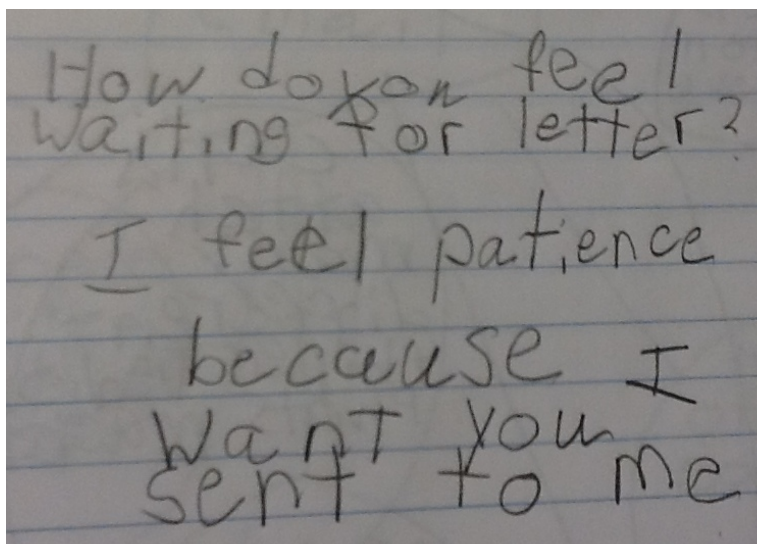 How do you feel
waiting for letter?
I feel patience
because I
want you
sent to me